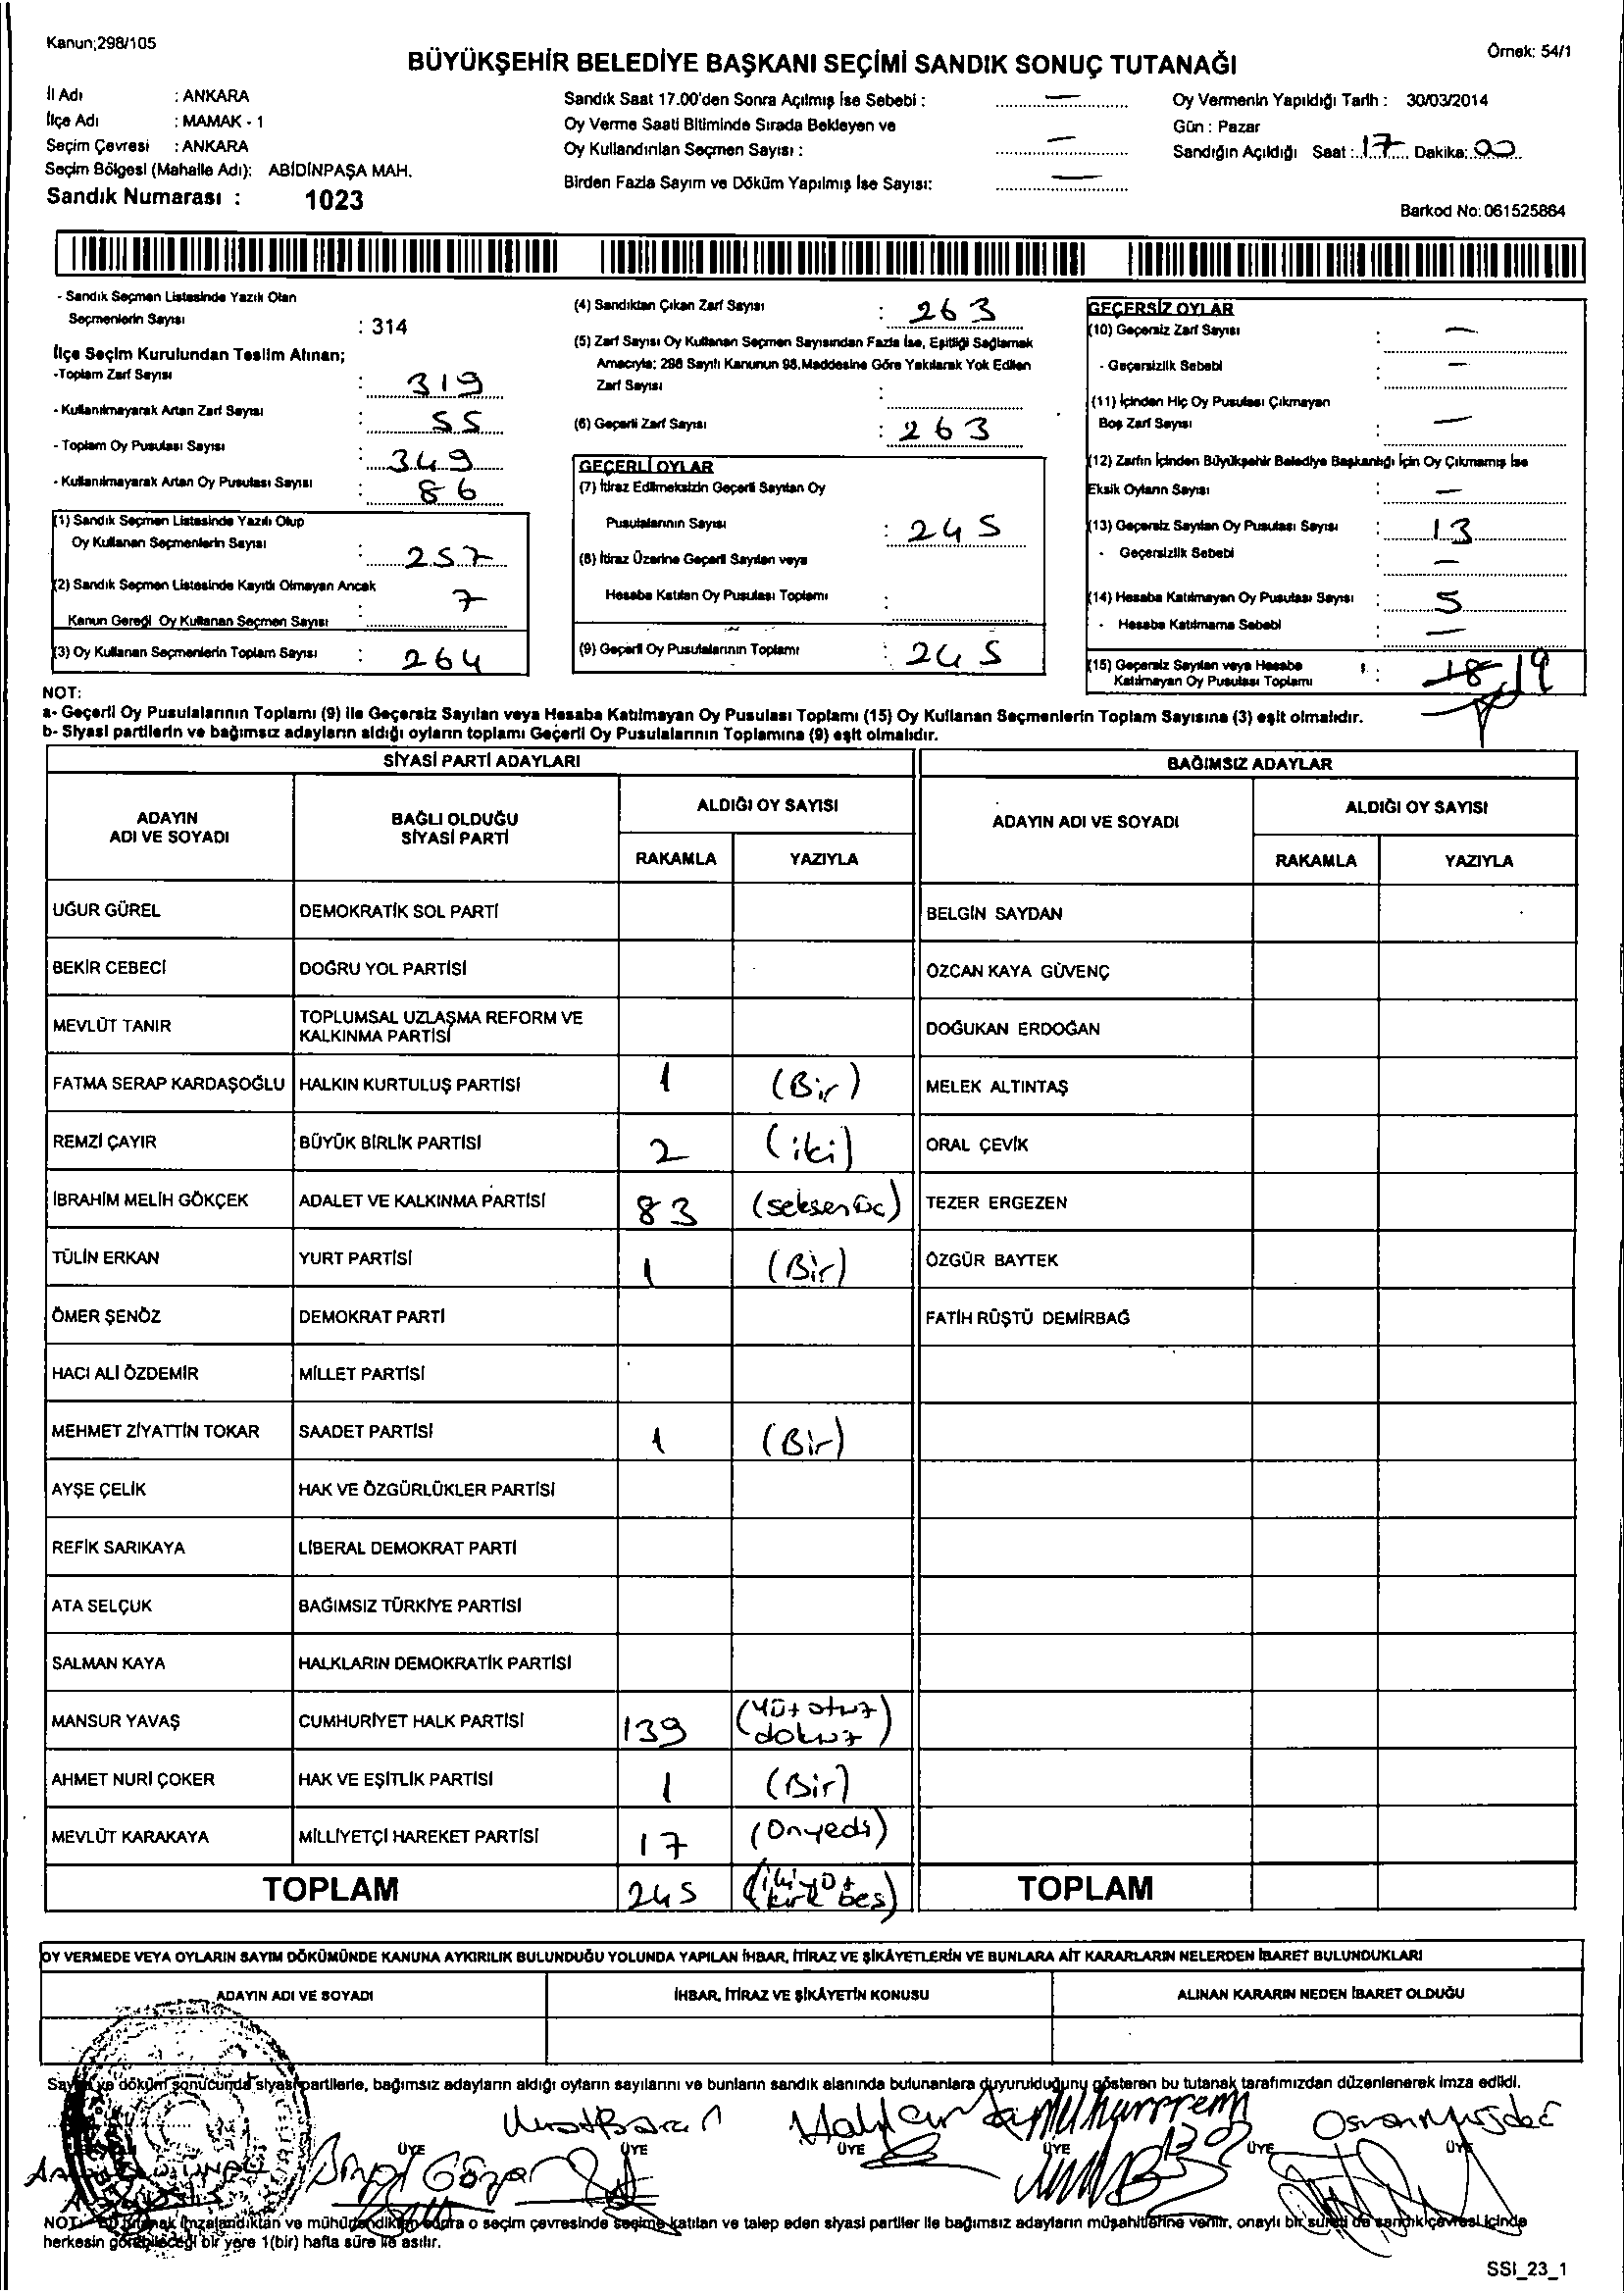 Kanun;298/105
Örnek: 54/1
BÜYÜKŞEHİR BELEDİYE BAŞKANI SEÇİMİ SANDIK SONUÇ TUTANAĞI
İl Adı : ANKARA
İlçe Adı : MAMAK - 1
Seçim Çevresi : ANKARA
Seçim Bölgesi (Mahalle Adı): ABİDİNPAŞA MAH.
Sandık Numarası : 1023
Sandık Saat 17.00'den Sonra Açılmış İse Sebebi : —
Oy Verme Saati Bitiminde Sırada Bekleyen ve
Oy Kullandırılan Seçmen Sayısı : —
Birden Fazla Sayım ve Döküm Yapılmış İse Sayısı: —
Oy Vermenin Yapıldığı Tarih : 30/03/2014
Gün : Pazar
Sandığın Açıldığı Saat : 17 Dakika: 00
Barkod No: 061525864
- Sandık Seçmen Listesinde Yazılı Olan
Seçmenlerin Sayısı : 314
İlçe Seçim Kurulundan Teslim Alınan;
-Toplam Zarf Sayısı : 319
- Kullanılmayarak Artan Zarf Sayısı : 55
- Toplam Oy Pusulası Sayısı : 349
- Kullanılmayarak Artan Oy Pusulası Sayısı : 86
(1) Sandık Seçmen Listesinde Yazılı Olup
Oy Kullanan Seçmenlerin Sayısı : 257
(2) Sandık Seçmen Listesinde Kayıtlı Olmayan Ancak
Kanun Gereği Oy Kullanan Seçmen Sayısı : 7
(3) Oy Kullanan Seçmenlerin Toplam Sayısı : 264
(4) Sandıktan Çıkan Zarf Sayısı : 263
(5) Zarf Sayısı Oy Kullanan Seçmen Sayısından Fazla İse, Eşitliği Sağlamak
Amacıyla; 298 Sayılı Kanunun 98.Maddesine Göre Yakılarak Yok Edilen
Zarf Sayısı :
(6) Geçerli Zarf Sayısı : 263
GEÇERLİ OYLAR
(7) İtiraz Edilmeksizin Geçerli Sayılan Oy
Pusulalarının Sayısı : 245
(8) İtiraz Üzerine Geçerli Sayılan veya
Hesaba Katılan Oy Pusulası Toplamı :
(9) Geçerli Oy Pusulalarının Toplamı : 245
GEÇERSİZ OYLAR
(10) Geçersiz Zarf Sayısı : —
- Geçersizlik Sebebi : —
(11) İçinden Hiç Oy Pusulası Çıkmayan
Boş Zarf Sayısı : —
(12) Zarfın İçinden Büyükşehir Belediye Başkanlığı İçin Oy Çıkmamış İse
Eksik Oyların Sayısı : —
(13) Geçersiz Sayılan Oy Pusulası Sayısı : 13
- Geçersizlik Sebebi : —
(14) Hesaba Katılmayan Oy Pusulası Sayısı : 5
- Hesaba Katılmama Sebebi : —
(15) Geçersiz Sayılan veya Hesaba : 18 19
Katılmayan Oy Pusulası Toplamı
NOT:
a- Geçerli Oy Pusulalarının Toplamı (9) ile Geçersiz Sayılan veya Hesaba Katılmayan Oy Pusulası Toplamı (15) Oy Kullanan Seçmenlerin Toplam Sayısına (3) eşit olmalıdır.
b- Siyasi partilerin ve bağımsız adayların aldığı oyların toplamı Geçerli Oy Pusulalarının Toplamına (9) eşit olmalıdır.
SİYASİ PARTİ ADAYLARI
BAĞIMSIZ ADAYLAR
ADAYIN ADI VE SOYADI
BAĞLI OLDUĞU SİYASİ PARTİ
ALDIĞI OY SAYISI
RAKAMLA YAZIYLA
ADAYIN ADI VE SOYADI
ALDIĞI OY SAYISI
RAKAMLA YAZIYLA
UĞUR GÜREL DEMOKRATİK SOL PARTİ BELGİN SAYDAN
BEKİR CEBECİ DOĞRU YOL PARTİSİ ÖZCAN KAYA GÜVENÇ
MEVLÜT TANIR TOPLUMSAL UZLAŞMA REFORM VE KALKINMA PARTİSİ DOĞUKAN ERDOĞAN
FATMA SERAP KARDAŞOĞLU HALKIN KURTULUŞ PARTİSİ 1 (Bir) MELEK ALTINTAŞ
REMZİ ÇAYIR BÜYÜK BİRLİK PARTİSİ 2 (iki) ORAL ÇEVİK
İBRAHİM MELİH GÖKÇEK ADALET VE KALKINMA PARTİSİ 83 (seksenüç) TEZER ERGEZEN
TÜLİN ERKAN YURT PARTİSİ 1 (Bir) ÖZGÜR BAYTEK
ÖMER ŞENÖZ DEMOKRAT PARTİ FATİH RÜŞTÜ DEMİRBAĞ
HACI ALİ ÖZDEMİR MİLLET PARTİSİ
MEHMET ZİYATTİN TOKAR SAADET PARTİSİ 1 (Bir)
AYŞE ÇELİK HAK VE ÖZGÜRLÜKLER PARTİSİ
REFİK SARIKAYA LİBERAL DEMOKRAT PARTİ
ATA SELÇUK BAĞIMSIZ TÜRKİYE PARTİSİ
SALMAN KAYA HALKLARIN DEMOKRATİK PARTİSİ
MANSUR YAVAŞ CUMHURİYET HALK PARTİSİ 139 (Yüz otuz dokuz)
AHMET NURİ ÇOKER HAK VE EŞİTLİK PARTİSİ 1 (Bir)
MEVLÜT KARAKAYA MİLLİYETÇİ HAREKET PARTİSİ 17 (Onyedi)
TOPLAM 245 (ikiyüz kırk beş) TOPLAM
OY VERMEDE VEYA OYLARIN SAYIM DÖKÜMÜNDE KANUNA AYKIRILIK BULUNDUĞU YOLUNDA YAPILAN İHBAR, İTİRAZ VE ŞİKÂYETLERİN VE BUNLARA AİT KARARLARIN NELERDEN İBARET BULUNDUKLARI
ADAYIN ADI VE SOYADI İHBAR, İTİRAZ VE ŞİKÂYETİN KONUSU ALINAN KARARIN NEDEN İBARET OLDUĞU
Sayım ve döküm sonucunda siyasi partilerle, bağımsız adayların aldığı oyların sayılarını ve bunların sandık alanında bulunanlara duyurulduğunu gösteren bu tutanak tarafımızdan düzenlenerek imza edildi.
ÜYE ÜYE ÜYE ÜYE ÜYE ÜYE
NOT: Bu tutanak imzalandıktan ve mühürlendikten sonra o seçim çevresinde seçime katılan ve talep eden siyasi partiler ile bağımsız adayların müşahitlerine verilir, onaylı bir sureti de sandık çevresi içinde
herkesin görebileceği bir yere 1(bir) hafta süre ile asılır.
SSI_23_1